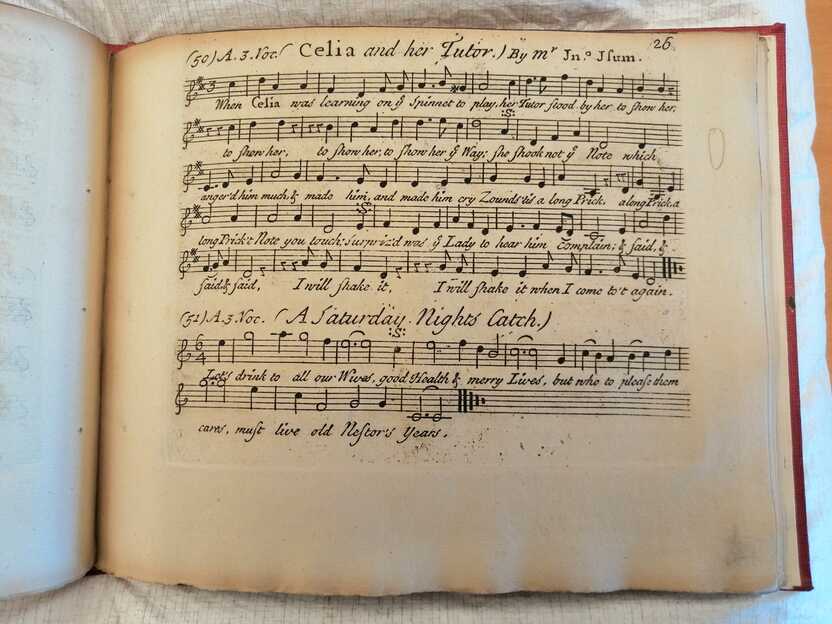 26
(50) A. 3. Voc. ( Celia and her Tutor. ) By mr Jn.o Jsum.
When Celia was learning on ye Spinnet to play, her Tutor stood by her to shew her,
:S:
to shew her, to shew her, to shew her ye Way; she shook not ye Note which
anger'd him much, & made him, and made him cry Zounds 'tis a long Prick, a long Prick, a
:S:
long Prick't Note you touch; Surpriz'd was ye Lady to hear him Complain; & said, &
said & said, I will shake it, I will shake it when I come to't again.
(51) A. 3. Voc. ( A Saturday Nights Catch. )
:S:
Let's drink to all our Wives, good Health & merry Lives, but who to please them
cares, must live old Nestor's Years.